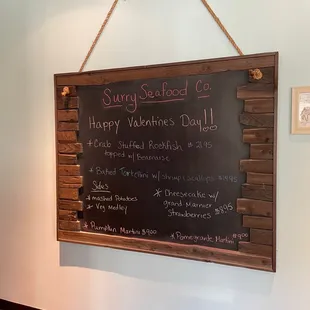 Surry Seafood Co.
Happy Valentines Day!!
* Crab Stuffed Rockfish $
topped w/ Bearnaise
* Baked Tortellini w/ Shrimp
Sides
* mashed Potatoes
* Veg Medley
* Cheesecake w/
grand Marnier
Strawberries $8.95
* Martini $9.00
* Pomegranate Martini $9.00